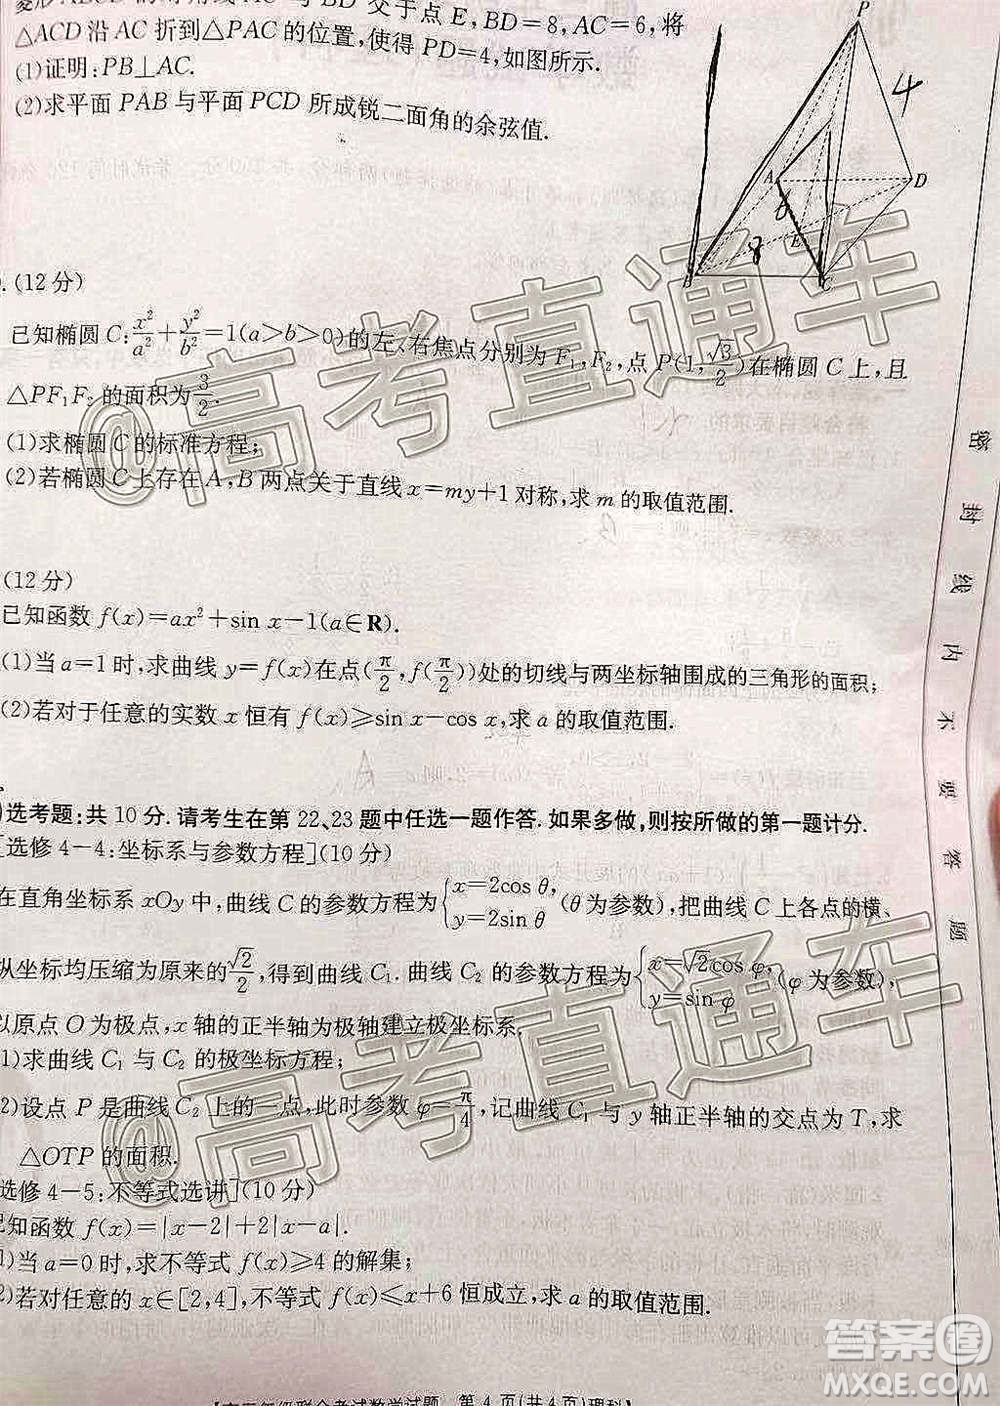 菱形ABCD 的对角线 AC 与 BD 交于点 E,BD=8,AC=6,将
△ACD 沿 AC 折到△PAC 的位置,使得 PD=4,如图所示.
(1)证明:PB⊥AC.
(2)求平面 PAB 与平面 PCD 所成锐二面角的余弦值.
P
4
A
D
6
E
8
B
C
(12 分)
已知椭圆 C:x²/a²+y²/b²=1(a>b>0)的左、右焦点分别为 F₁,F₂,点 P(1,√3/2)在椭圆 C 上,且
△PF₁F₂ 的面积为3/2.
(1)求椭圆 C 的标准方程;
(2)若椭圆 C 上存在 A,B 两点关于直线 x=my+1 对称,求 m 的取值范围.
(12 分)
已知函数 f(x)=ax²+sin x-1(a∈R).
(1)当 a=1 时,求曲线 y=f(x)在点(π/2,f(π/2))处的切线与两坐标轴围成的三角形的面积;
(2)若对于任意的实数 x 恒有 f(x)≥sin x-cos x,求 a 的取值范围.
)选考题:共 10 分.请考生在第 22、23 题中任选一题作答.如果多做,则按所做的第一题计分.
[选修 4-4:坐标系与参数方程](10 分)
在直角坐标系 xOy 中,曲线 C 的参数方程为{x=2cos θ, y=2sin θ (θ为参数),把曲线 C 上各点的横、
纵坐标均压缩为原来的√2/2,得到曲线 C₁.曲线 C₂ 的参数方程为{x=√2cos φ, y=sin φ (φ 为参数),
以原点 O 为极点,x 轴的正半轴为极轴建立极坐标系.
1)求曲线 C₁ 与 C₂ 的极坐标方程;
2)设点 P 是曲线 C₂ 上的一点,此时参数 φ=π/4,记曲线 C₁ 与 y 轴正半轴的交点为 T,求
△OTP 的面积.
选修 4-5:不等式选讲](10 分)
已知函数 f(x)=|x-2|+2|x-a|.
)当 a=0 时,求不等式 f(x)≥4 的解集;
2)若对任意的 x∈[2,4],不等式 f(x)≤x+6 恒成立,求 a 的取值范围.
联合考试数学试题 第 4 页(共 4 页)理科】
密封线内不要答题
@高考直通车
@高考直通车
答案圈
MXQE.COM